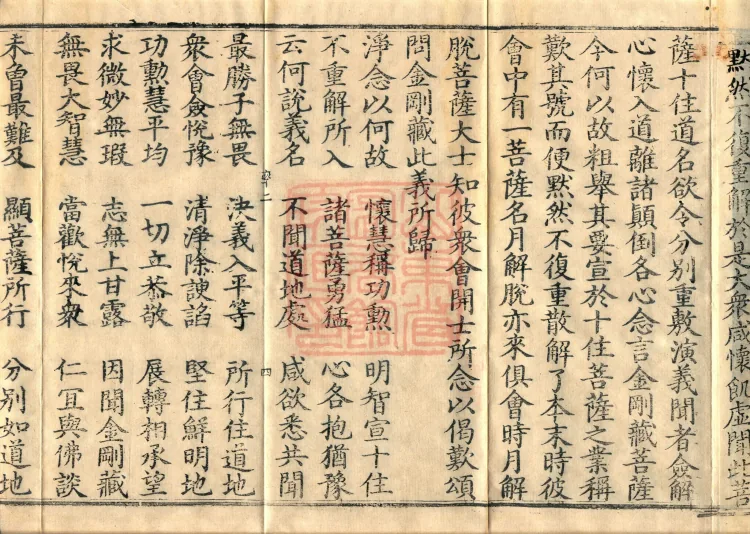 默然不復重解於是大衆咸懷飢虛聞此菩
薩十住道名欲令分別重敷演義聞者僉解
心懷入道離諸顛倒各心念言金剛藏菩薩
今何以故粗舉其要宣於十住菩薩之業稱
歎其號而便默然不復重散解了本末時彼
會中有一菩薩名月解脫亦來俱會時月解
脫菩薩大士知彼衆會開士所念以偈歎頌
問金剛藏此義所歸
淨念以何故 懷慧稱功勲 明智宣十住
不重解所入 諸菩薩勇猛 心各抱猶豫
云何說義名 不聞道地處 咸欲悉共聞
最勝子無畏 決義入平等 所行住道地
衆會僉悅豫 清淨除諛諂 堅住鮮明地
功勲慧平均 一切立恭敬 展轉相承望
求微妙無瑕 志無上甘露 因聞金剛藏
無畏大智慧 當歡悅來衆 仁宜與佛談
未曾最難及 顯菩薩所行 分別如道地